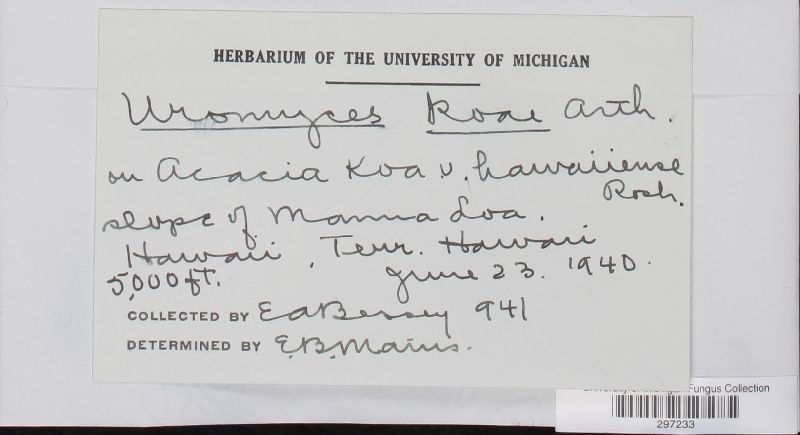 HERBARIUM OF THE UNIVERSITY OF MICHIGAN
Uromyces Koae Arth.
on Acacia Koa v. hawaiiense
Rock.
slope of Mauna Loa.
Hawaii, Terr. Hawaii
5,000 ft. June 23. 1940.
COLLECTED BY E A Bessey 941
DETERMINED BY E.B. Mains.
University of Michigan Fungus Collection
297233